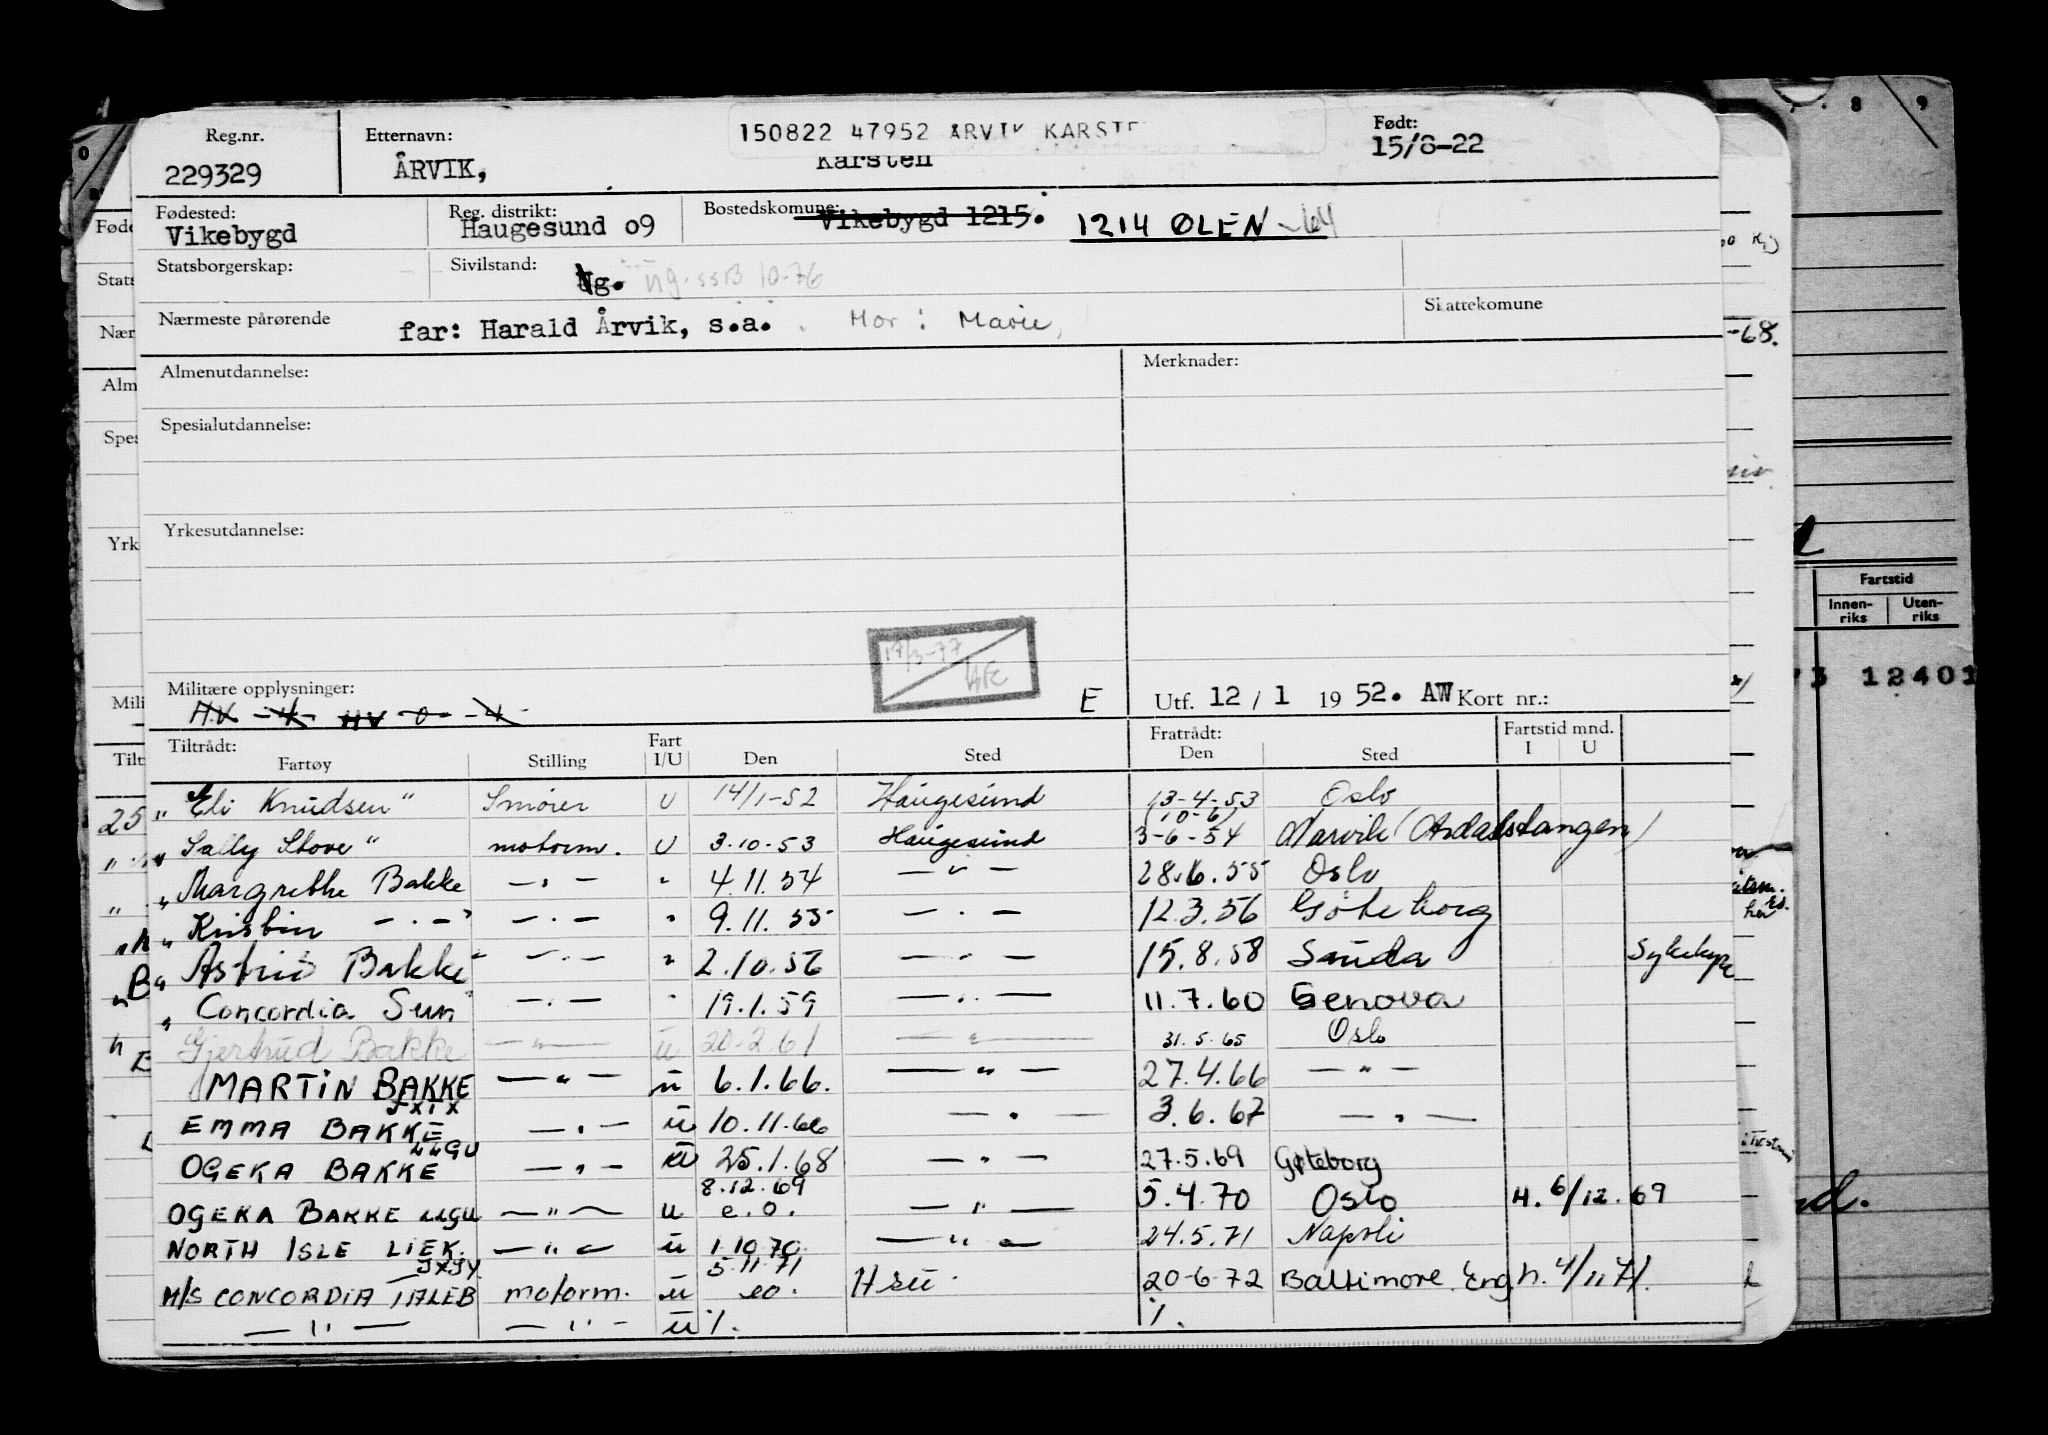 Reg.nr. Etternavn: 150822 47952 ÅRVIK KARSTE Født:
229329 ÅRVIK, Karsten 15/8-22
Fødested: Reg. distrikt: Bostedskomune:
Vikebygd Haugesund 09 Vikebygd 1215. 1214 ØLEN -64
Statsborgerskap: Sivilstand: Ug. ug. ssB 10-76
Nærmeste pårørende far: Harald Årvik, s.a. Mor: Marie, Skattekomune
Almenutdannelse: Merknader:
Spesialutdannelse:
Yrkesutdannelse:
17/3-77
Militære opplysninger: E Utf. 12 / 1 1952. AW Kort nr.:
HV -4- HV -0- -4-
Tiltrådt: Fart Fratrådt: Fartstid mnd.
Fartøy Stilling I/U Den Sted Den Sted I U
" Eli Knudsen" Smører U 14/1-52 Haugesund 13-4-53 Oslo
(10-6)
" Sally Stove" motorm. U 3.10-53 Haugesund 3-6-54 Narvik (Årdalstangen)
" Margrethe Bakke -"- " 4.11.54 -"- 28.6.55 Oslo
" Kristin -"-" -"- " 9.11.55 -"- 12.3.56 Göteborg
" Astrid Bakke" -"- " 2.10.56 -"- 15.8.58 Sauda
" Concordia Sun" -"- " 19.1.59 -"- 11.7.60 Genova
Gjertrud Bakke -"- u 20-2.61 -"- 31.5.65 Oslo
MARTIN BAKKE -"- u 6.1.66. -"- 27.4.66 -"-
JXIX
EMMA BAKKE -"- u 10.11.66 -"- 3.6.67 -"-
LLGU
OGEKA BAKKE -"- u 25.1.68 -"- 27.5.69 Gøteborg
8.12.69
OGEKA BAKKE LLGU -"- u e.o. -"- 5.4.70 Oslo H. 6/12.69
NORTH ISLE LIEK. -"- u 1.10.70 -"- 24.5.71 Napoli
JXJY 5.11.71
M/S CONCORDIA TALEB motorm. u eo. Hsu. 20-6-72 Baltimore Eng. h. 4/11 71.
-"- -"- u %. %.
Fartstid
Innen-riks Uten-riks
12401